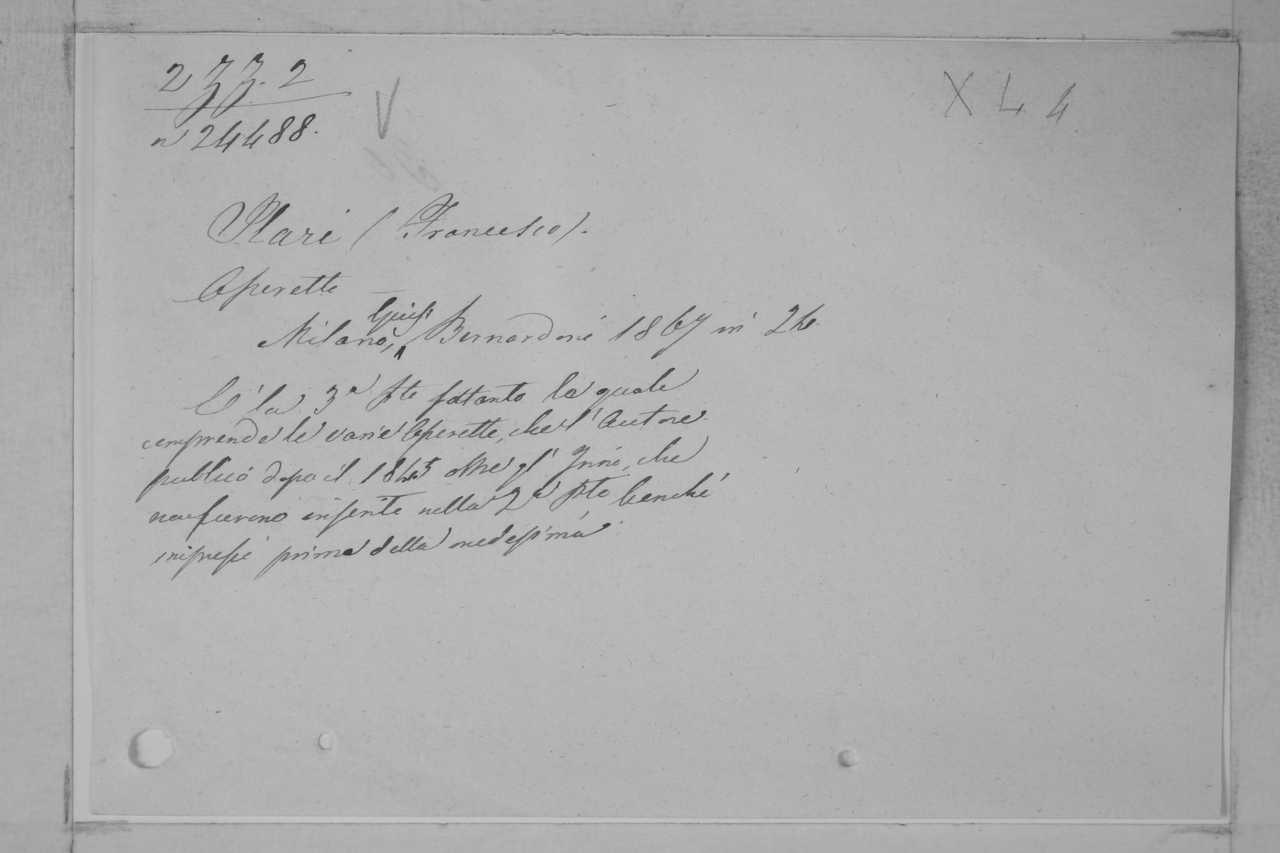 2 ZZ. 2
n 24488.
V
X L 4
Ilari (Francesco).
Operette
Milano, Gius. Bernardoni 1867 in 24.
È la 3a pte soltanto la quale
comprende le varie Operette, che l'Autore
publicò dopo il 1845 oltre gl' Inni, che
non furono inserite nella 2a pte benché
impresse prima della medesima.